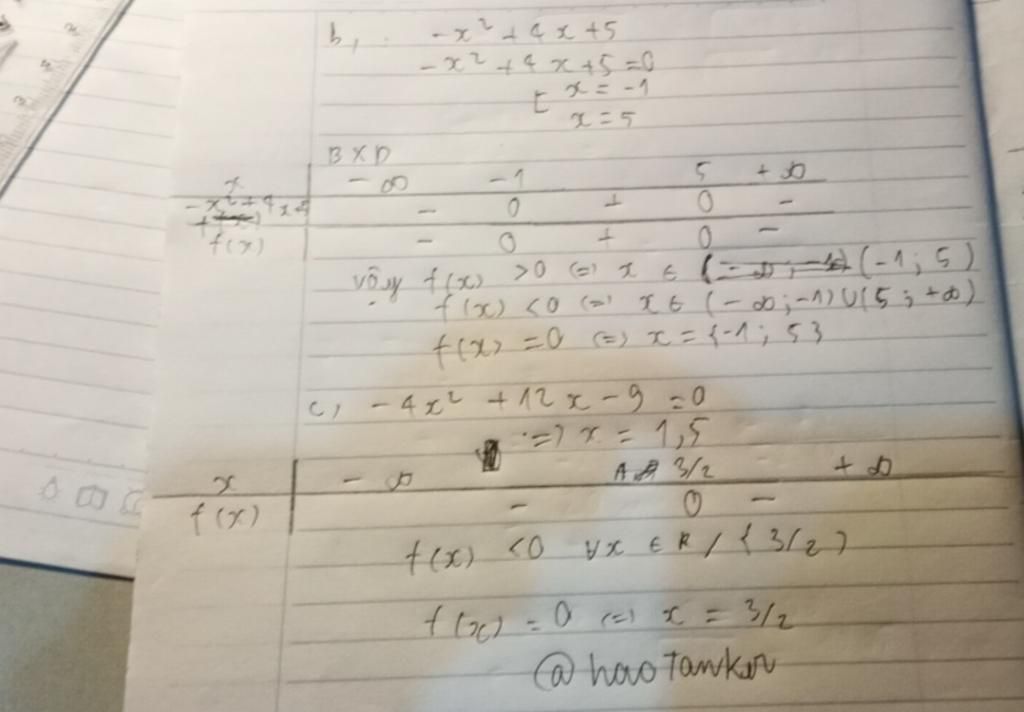 b, -x² + 4x + 5
-x² + 4x + 5 = 0
[ x = -1
x = 5
BXD
x | -∞ -1 5 +∞
-x² + 4x + 5 | - 0 + 0 -
f(x) | - 0 + 0 -
vậy f(x) > 0 (=) x ∈ (-1; 5)
f(x) < 0 (=) x ∈ (-∞; -1) ∪ (5; +∞)
f(x) = 0 (=) x = {-1; 5}
c, -4x² + 12x - 9 = 0
=) x = 1,5
x | -∞ 3/2 +∞
f(x) | - 0 -
f(x) < 0 ∀x ∈ R / {3/2}
f(x) = 0 (=) x = 3/2
@haoTanker